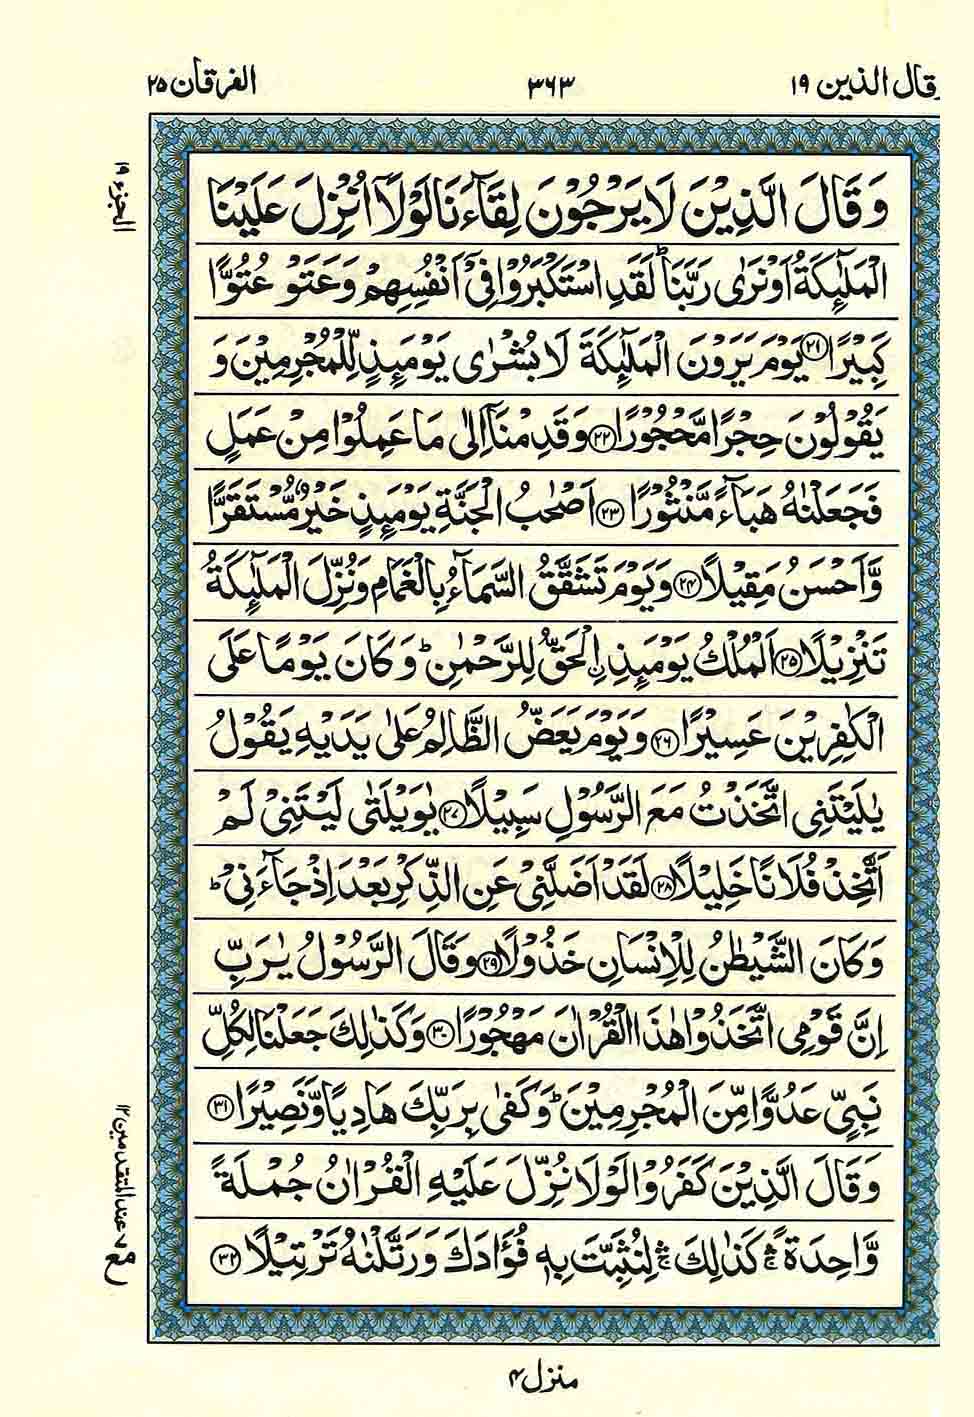 وقال الذين ١٩
٣٦٣
الفرقان ٢٥
الجزء ١٩
وَقَالَ الَّذِيْنَ لَا يَرْجُوْنَ لِقَآءَنَا لَوْلَآ اُنْزِلَ عَلَيْنَا
الْمَلٰٓئِكَةُ اَوْ نَرٰى رَبَّنَا ؕ لَقَدِ اسْتَكْبَرُوْا فِىْٓ اَنْفُسِهِمْ وَعَتَوْ عُتُوًّا
كَبِيْرًا ﴿٢١﴾ يَوْمَ يَرَوْنَ الْمَلٰٓئِكَةَ لَا بُشْرٰى يَوْمَئِذٍ لِّلْمُجْرِمِيْنَ وَ
يَقُوْلُوْنَ حِجْرًا مَّحْجُوْرًا ﴿٢٢﴾ وَقَدِمْنَآ اِلٰى مَا عَمِلُوْا مِنْ عَمَلٍ
فَجَعَلْنٰهُ هَبَآءً مَّنْثُوْرًا ﴿٢٣﴾ اَصْحٰبُ الْجَنَّةِ يَوْمَئِذٍ خَيْرٌ مُّسْتَقَرًّا
وَّاَحْسَنُ مَقِيْلًا ﴿٢٤﴾ وَيَوْمَ تَشَقَّقُ السَّمَآءُ بِالْغَمَامِ وَنُزِّلَ الْمَلٰٓئِكَةُ
تَنْزِيْلًا ﴿٢٥﴾ اَلْمُلْكُ يَوْمَئِذِ ِۨالْحَقُّ لِلرَّحْمٰنِ ؕ وَكَانَ يَوْمًا عَلَى
الْكٰفِرِيْنَ عَسِيْرًا ﴿٢٦﴾ وَيَوْمَ يَعَضُّ الظَّالِمُ عَلٰى يَدَيْهِ يَقُوْلُ
يٰلَيْتَنِى اتَّخَذْتُ مَعَ الرَّسُوْلِ سَبِيْلًا ﴿٢٧﴾ يٰوَيْلَتٰى لَيْتَنِىْ لَمْ
اَتَّخِذْ فُلَانًا خَلِيْلًا ﴿٢٨﴾ لَقَدْ اَضَلَّنِىْ عَنِ الذِّكْرِ بَعْدَ اِذْ جَآءَنِىْ ؕ
وَكَانَ الشَّيْطٰنُ لِلْاِنْسَانِ خَذُوْلًا ﴿٢٩﴾ وَقَالَ الرَّسُوْلُ يٰرَبِّ
اِنَّ قَوْمِى اتَّخَذُوْا هٰذَا الْقُرْاٰنَ مَهْجُوْرًا ﴿٣٠﴾ وَكَذٰلِكَ جَعَلْنَا لِكُلِّ
نَبِىٍّ عَدُوًّا مِّنَ الْمُجْرِمِيْنَ ؕ وَكَفٰى بِرَبِّكَ هَادِيًا وَّنَصِيْرًا ﴿٣١﴾
وَقَالَ الَّذِيْنَ كَفَرُوْا لَوْلَا نُزِّلَ عَلَيْهِ الْقُرْاٰنُ جُمْلَةً
وَّاحِدَةً ۛۚ كَذٰلِكَ ۛۚ لِنُثَبِّتَ بِهٖ فُؤَادَكَ وَرَتَّلْنٰهُ تَرْتِيْلًا ﴿٣٢﴾
مع ٧ عند المتقدمين ١٢
منزل ٤